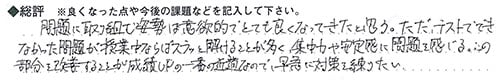 ◆総評 ※良くなった点や今後の課題などを記入して下さい。
問題に取り組む姿勢は意欲的でとても良くなってきたと思う。ただ、テストでできな
かった問題が授業中ならばスラっと解けることが多く、集中力や安定感に問題を感じる。この
部分を改善することが成績UPの一番の近道なので、早急に対策を練りたい。